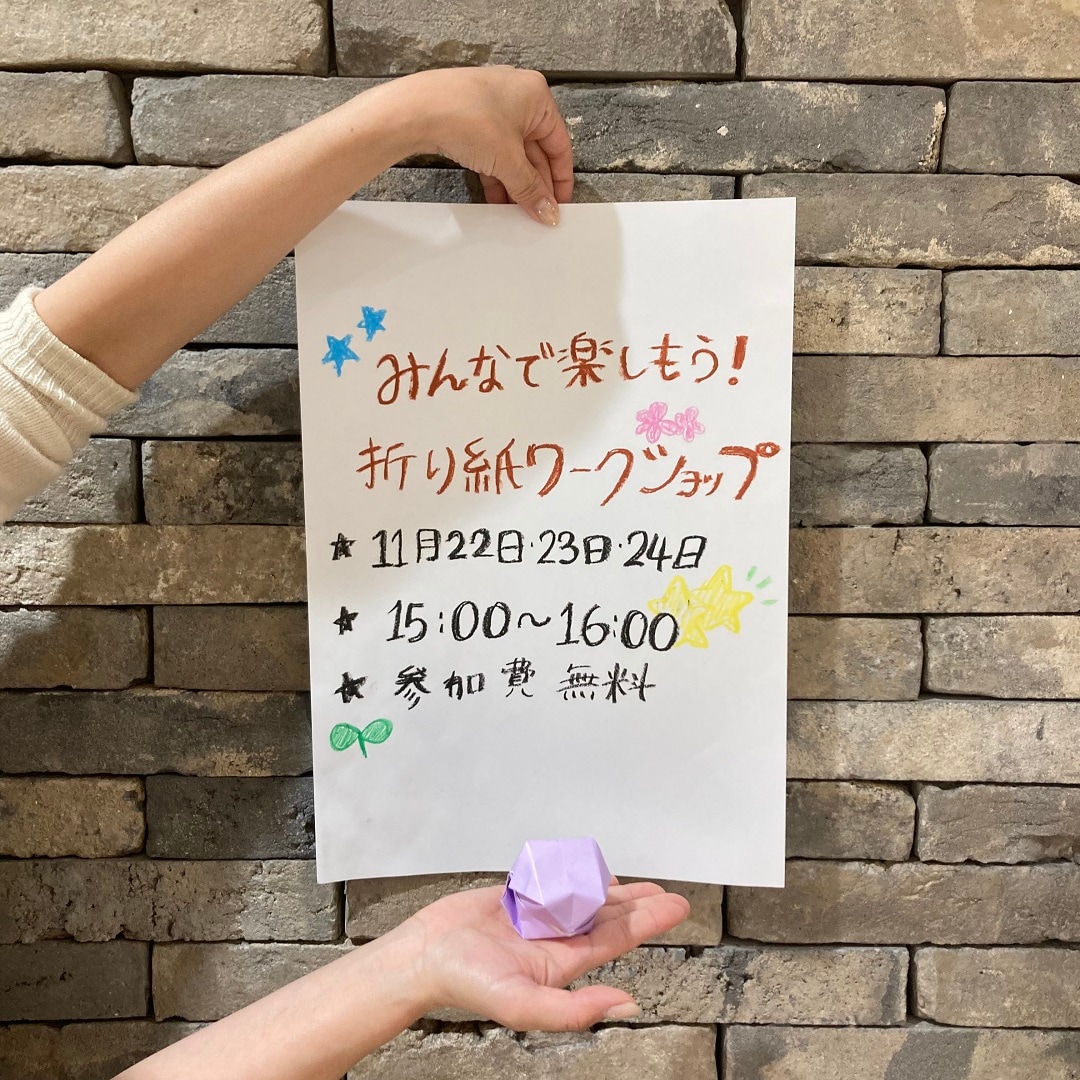 みんなで楽しもう!
折り紙ワークショップ
★ 11月22日・23日・24日
★ 15:00～16:00
★ 参加費 無料